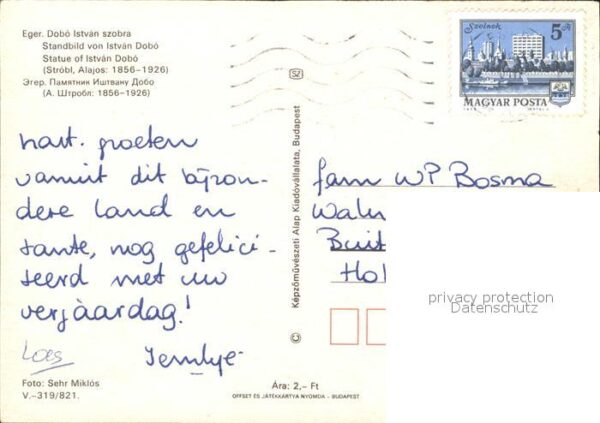 Eger. Dobó István szobra
Standbild von István Dobó
Statue of István Dobó
(Stróbl, Alajos: 1856–1926)
Эгер. Памятник Иштвану Добо
(А. Штробл: 1856–1926)
hart. groeten
vanuit dit bijzon-
dere land en
tante, nog gefelici-
teerd met uw
verjaardag!
Loes
Foto: Sehr Miklós
V.–319/821.
SZ
Képzőművészeti Alap Kiadóvállalata, Budapest
©
Szolnok
5 Ft
MAGYAR POSTA
fam WP Bosma
Ára: 2,– Ft
OFFSET ÉS JÁTÉKKÁRTYA NYOMDA – BUDAPEST
privacy protection
Datenschutz